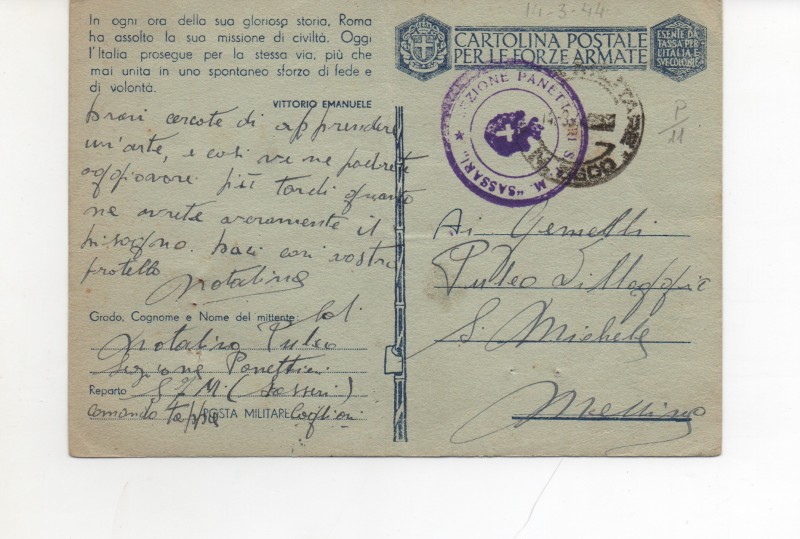 14-3-44
In ogni ora della sua gloriosa storia, Roma
ha assolto la sua missione di civiltà. Oggi
l'Italia prosegue per la stessa via, più che
mai unita in uno spontaneo sforzo di fede e
di volontà.
VITTORIO EMANUELE
CARTOLINA POSTALE
PER LE FORZE ARMATE
ESENTE DA
TASSA PER
L'ITALIA E
SUE COLONIE
SEZIONE PANETTIERI S. M. "SASSARI"
P/11
bravi cercate di apprendere
un'arte, e così ve ne potrete
aggiovare più tardi quanto
ne avrete veramente il
bisogno. baci con vostro
fratello
Natalino
Grado, Cognome e Nome del mittente: Sol
Natalino Puleo
Sezione Panettieri
Reparto S.I.M. (Sassari)
comando tappa POSTA MILITARE Cagliari
Ai Gemelli
Puleo
S. Michele
Messina